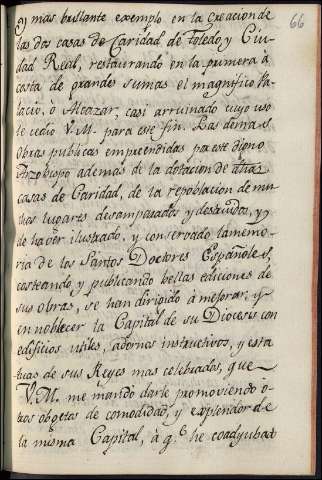 66
y mas brillante exemplo en la creacion de
las dos casas de Caridad de Toledo y Ciu-
dad Real, restaurando en la primera à
costa de grandes sumas el magnifico Pa-
lacio, ò Alcazar, casi arruinado cuyo uso
le cedió V.M. para este fin. Las demas
Obras publicas emprendidas por este digno
Arzobispo ademas de la dotacion de otras
casas de Caridad, de la repoblacion de mu-
chos lugares desamparados y destruidos, y
de haver ilustrado, y conservado la memo-
ria de los Santos Doctores Españoles,
costeando y publicando bellas ediciones de
sus obras, se han dirigido à mejorar, y
ennoblecer la Capital de su Diocesis con
edificios utiles, adornos instructivos, y esta
tuas de sus Reyes mas celebrados, que
V.M. me mandó darle promoviendo o-
tros objetos de comodidad, y explendor de
la misma Capital, à q.e he coadyubado